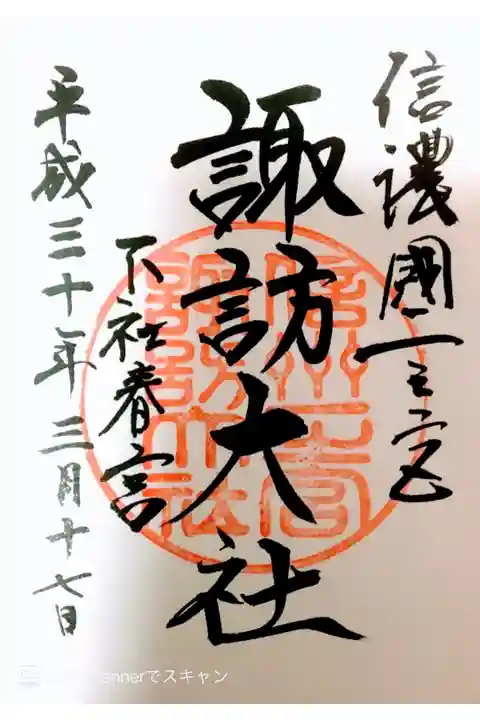 信濃國一之宮
諏訪大社
下社春宮
平成三十年三月十七日
信州一之宮
諏訪大社
nnerでスキャン